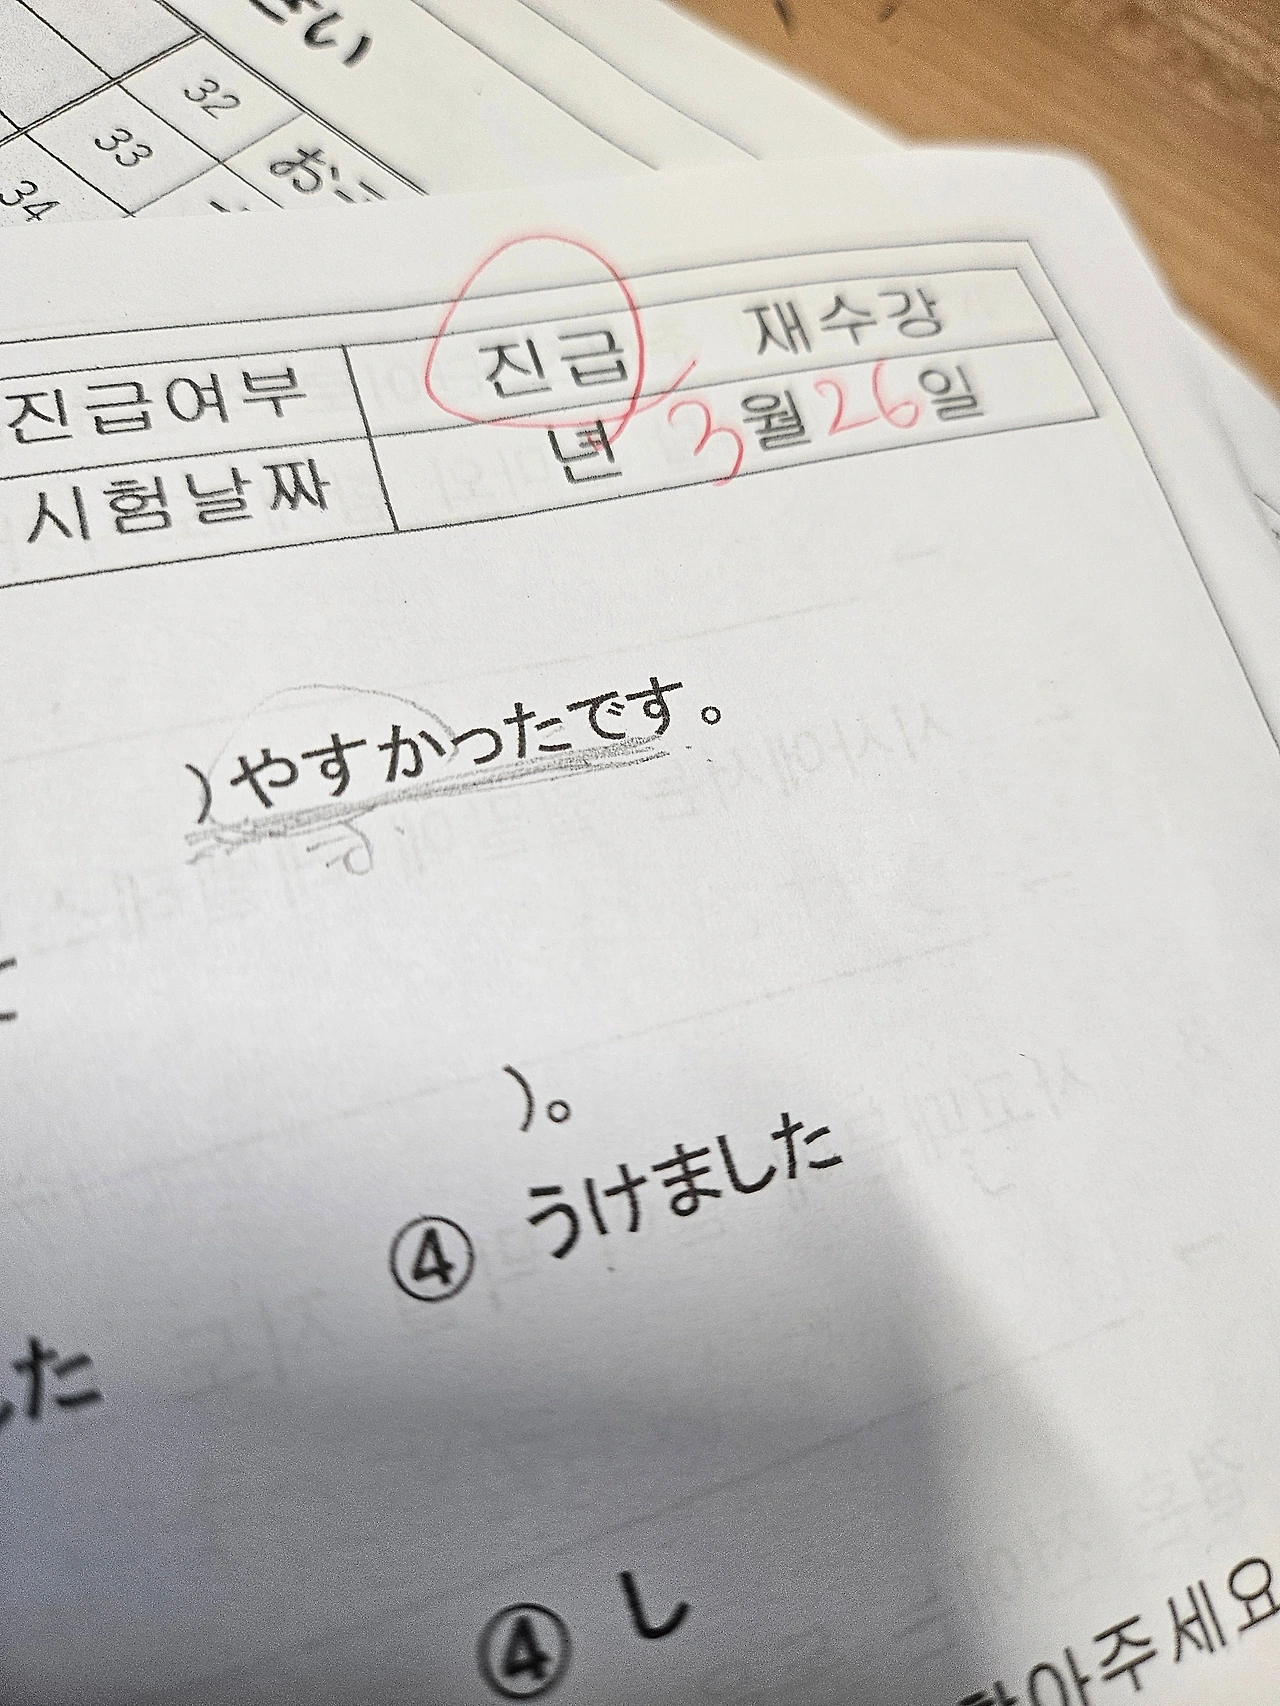 さい
32
33 おい
34
진급여부 진급 재수강
시험날짜 년 3월 26일
) やすかったです。
)。
④ うけました
した
④ し
아주세요